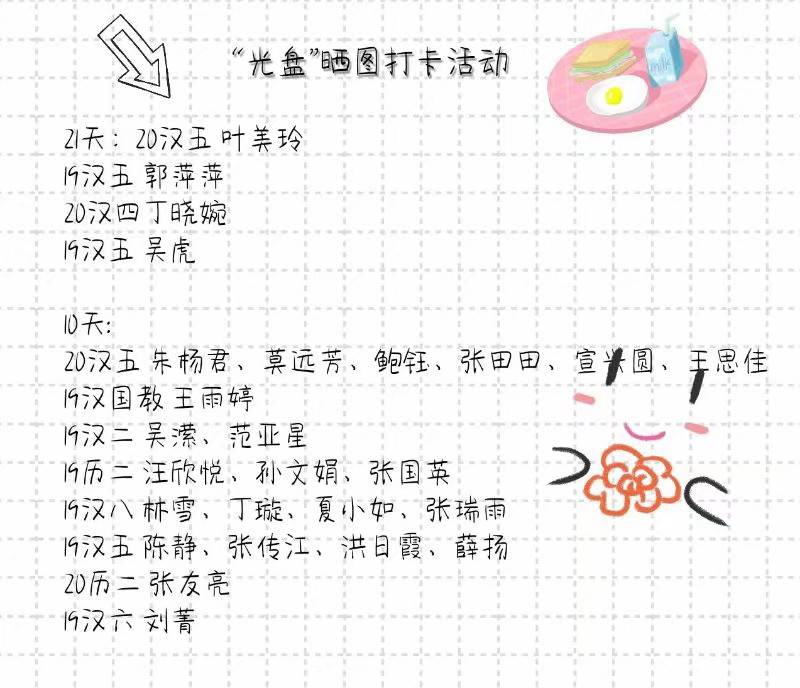 “光盘”晒图打卡活动
milk
21天：20汉五 叶美玲
19汉五 郭萍萍
20汉四 丁晓婉
19汉五 吴虎
10天:
20汉五 朱杨君、莫远芳、鲍钰、张田田、宣兴圆、王思佳
19汉国教 王雨婷
19汉二 吴潆、范亚星
19历二 汪欣悦、孙文娟、张国英
19汉八 林雪、丁璇、夏小如、张瑞雨
19汉五 陈静、张传江、洪日霞、薛扬
20历二 张友亮
19汉六 刘菁